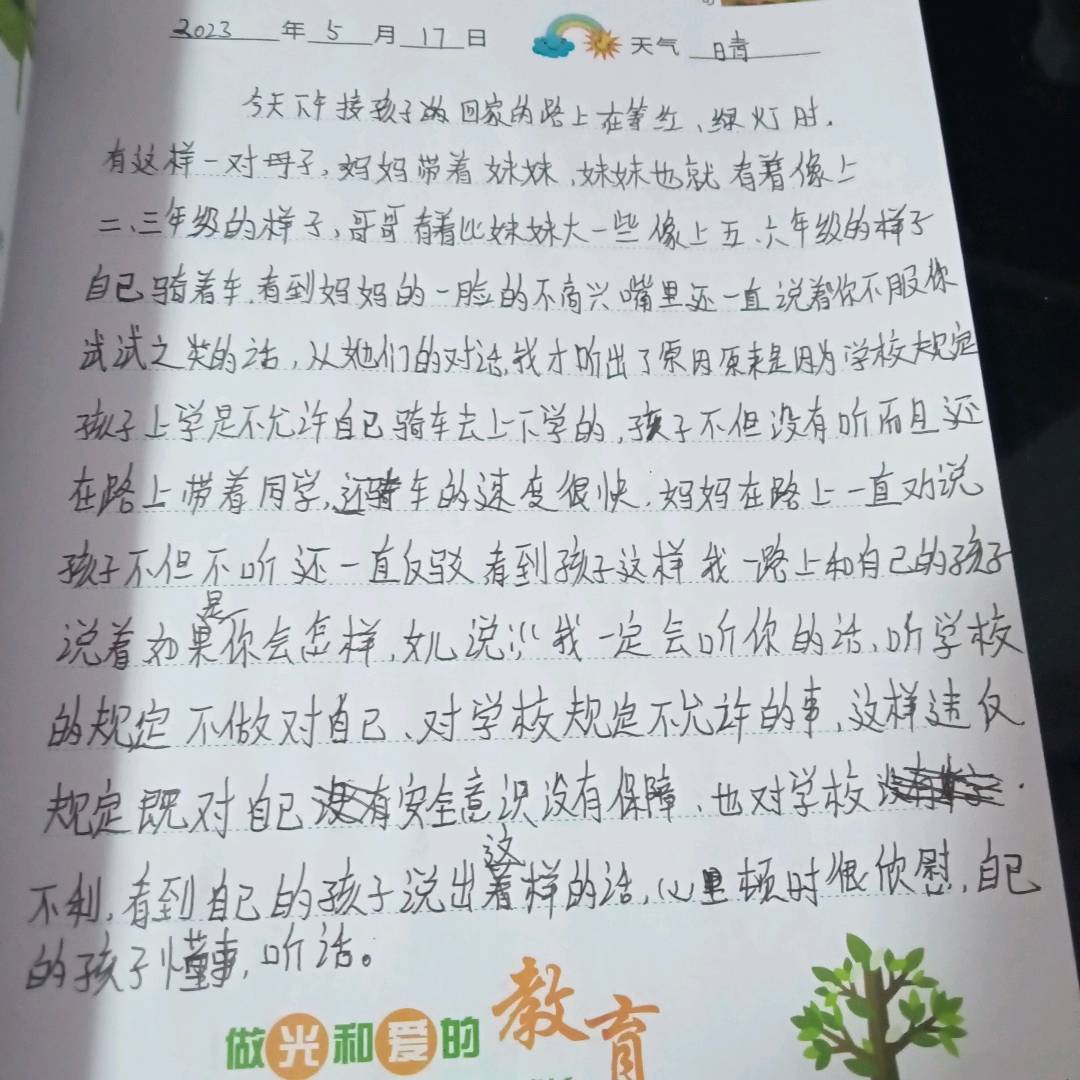 2023年5月17日 天气 晴
今天下午接孩子的回家的路上在等红、绿灯时,
有这样一对母子,妈妈带着妹妹,妹妹也就看着像上
二、三年级的样子,哥哥看着比妹妹大一些像上五、六年级的样子
自己骑着车,看到妈妈的一脸的不高兴嘴里还一直说着你不服你
试试之类的话,从她们的对话,我才听出了原因原来是因为学校规定
孩子上学是不允许自己骑车去上下学的,孩子不但没有听而且还
在路上带着同学,还骑车的速度很快,妈妈在路上一直劝说
孩子不但不听还一直反驳看到孩子这样我一路上和自己的孩子
说着如果是你会怎样,女儿说:“我一定会听你的话、听学校
的规定不做对自己、对学校规定不允许的事,这样违反
规定既对自己有安全意识没有保障、也对学校
不利,看到自己的孩子说出这样的话,心里顿时很欣慰,自己
的孩子懂事,听话。
做光和爱的教育